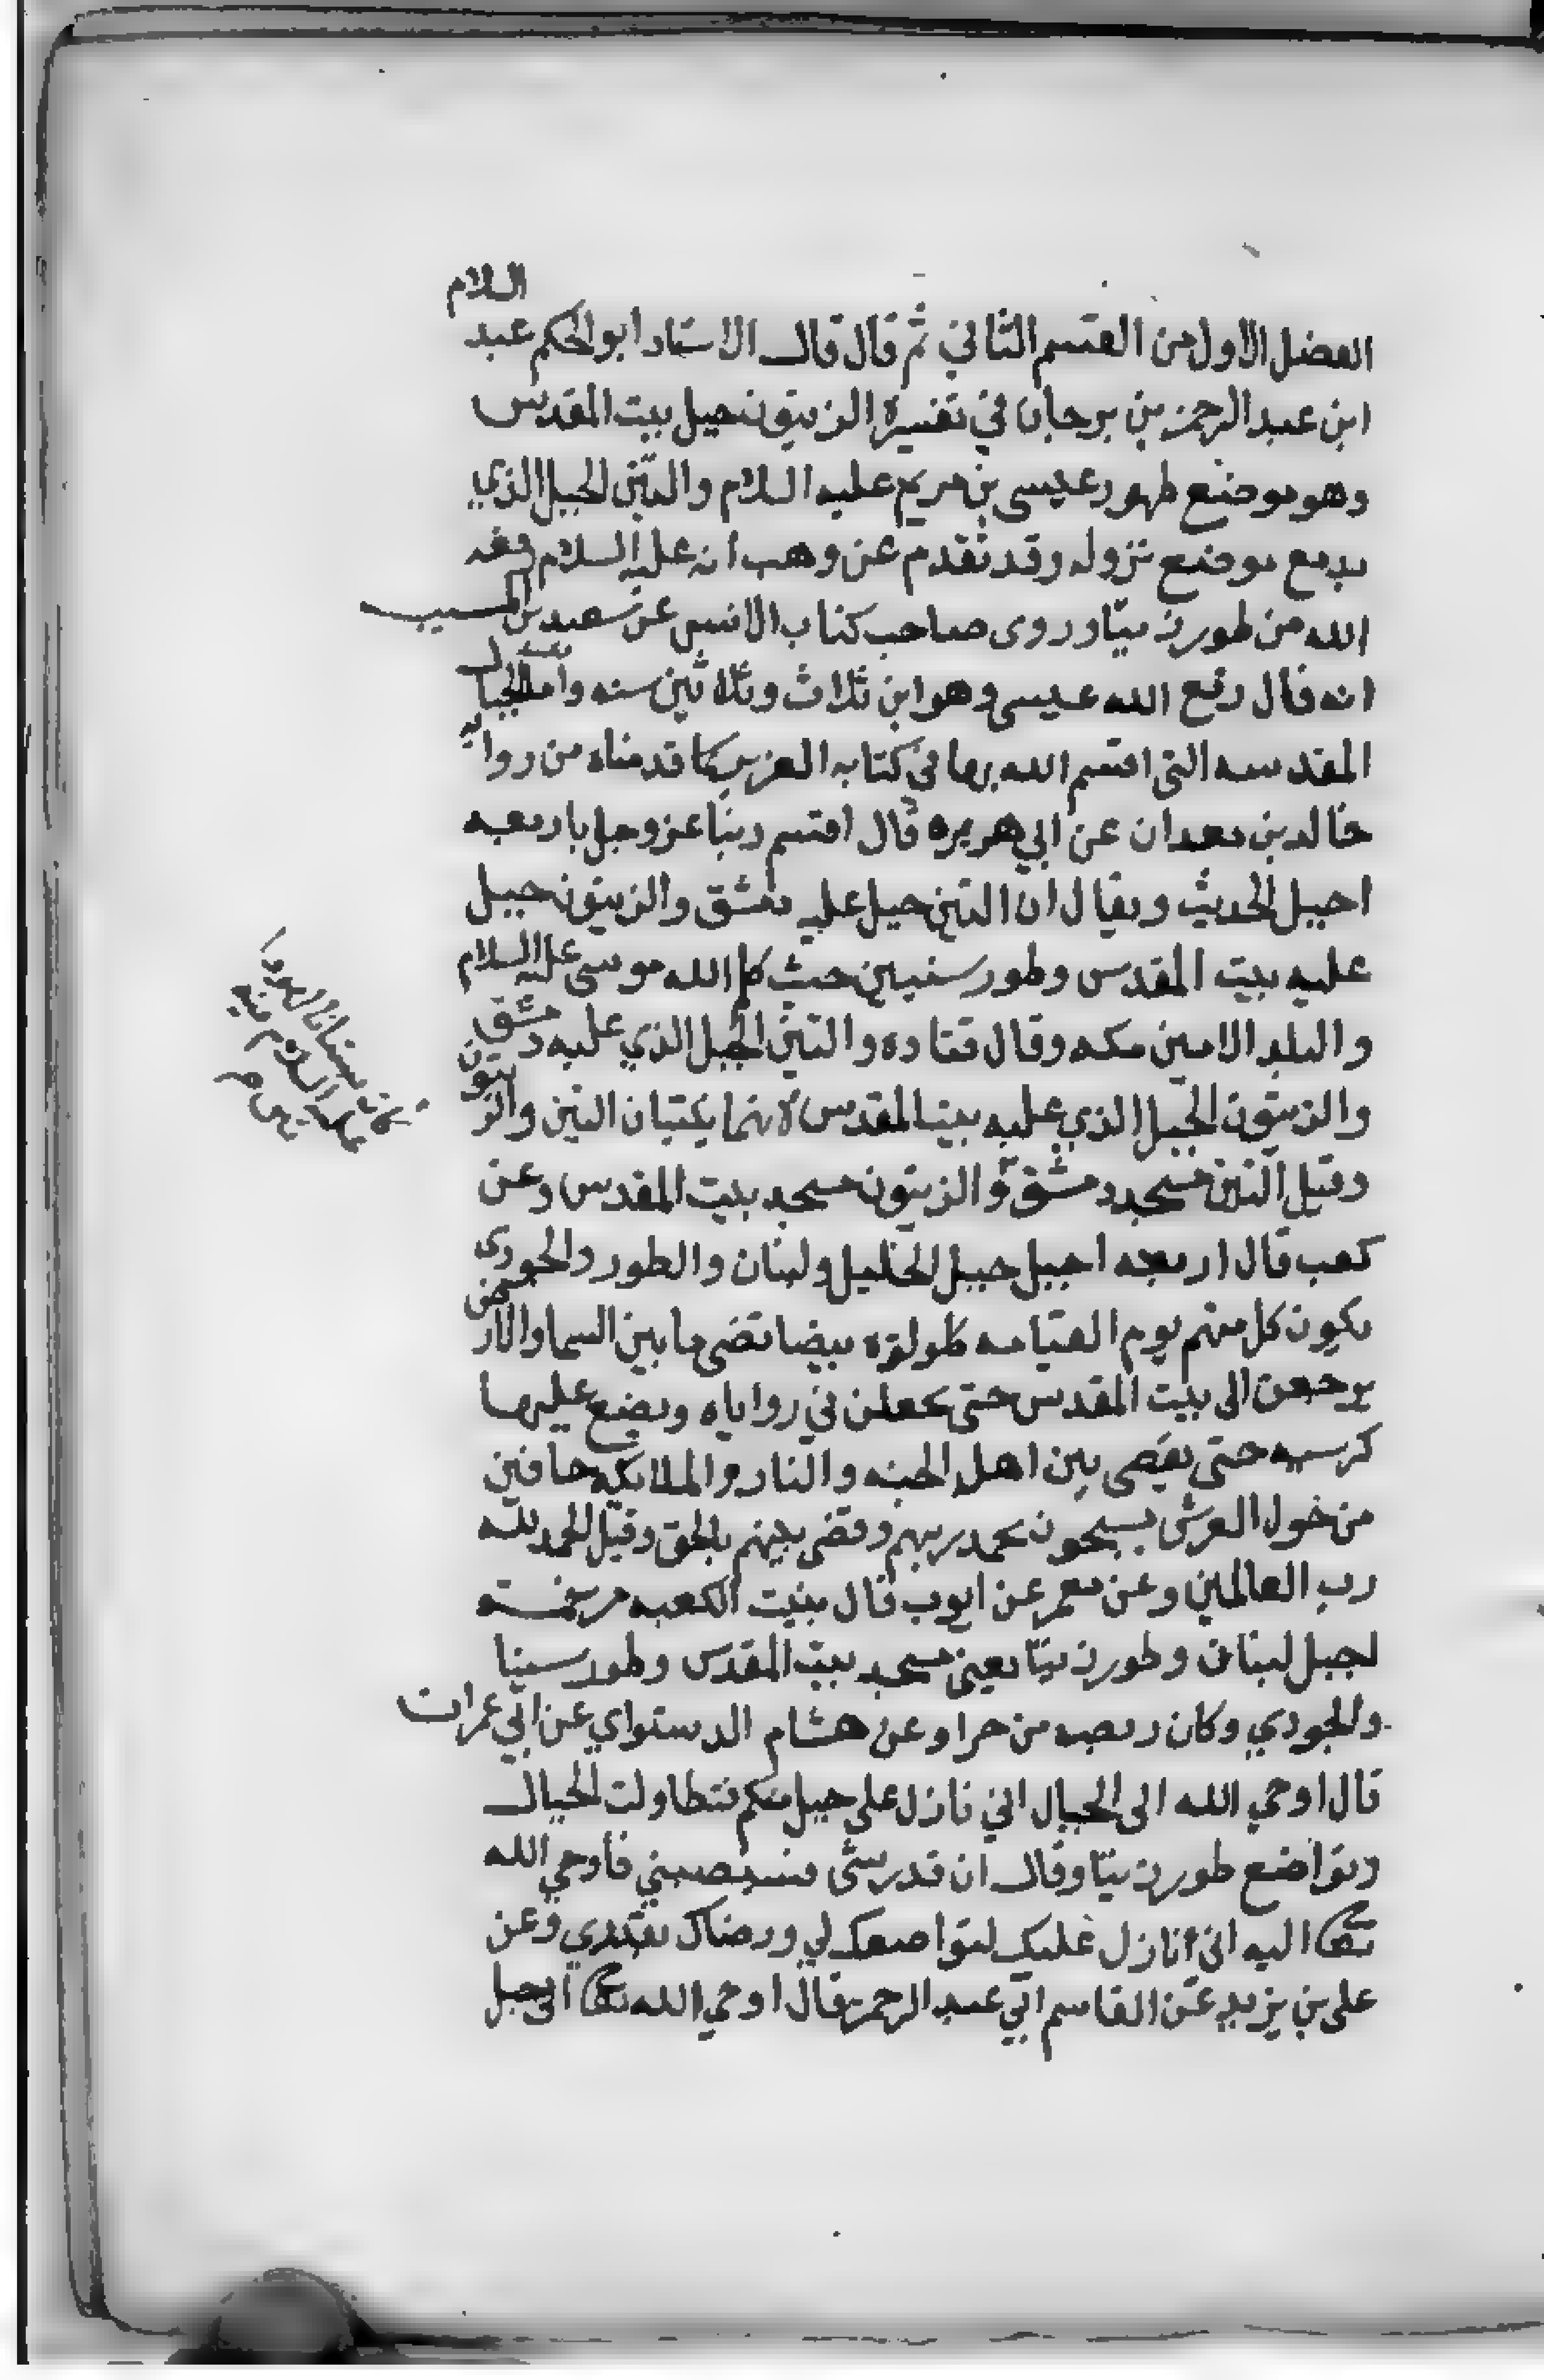 الفصل الاول من القسم الثاني ثم قال قال الاستاد ابو الحكم عبد السلام
ابن عبد الرحمن بن برجان في تفسيره الزيتون جبل بيت المقدس
وهو موضع ظهور عيسى بن مريم عليه السلام والتين الجبل الذي
بدمع موضع نزوله وقد تقدم عن وهب انه عليه السلام رفعه
الله من طور زيتا وروى صاحب كتاب الانس عن سعيد بن المسيب
انه قال رفع الله عيسى وهو ابن ثلاث وثلاثين سنه واما الجبال
المقدسه التي اقسم الله بها في كتابه العزيز كما قدمناه من روايه
خالد بن معدان عن ابي هريره قال اقسم ربنا عز وجل باربعه
اجبل الحديث ويقال ان التين جبل عليه دمشق والزيتون جبل
عليه بيت المقدس وطور سنيين حيث كلم الله موسى عليه السلام
والبلد الامين مكه وقال قتاده والتين الجبل الذي عليه دمشق
والزيتون الجبل الذي عليه بيت المقدس لانهما ينبتان التين والزيتون
وقيل التين مسجد دمشق والزيتون مسجد بيت المقدس وعن
كعب قال اربعه اجبل جبل الخليل ولبنان والطور والجودي
يكون كل منهم يوم القيامه كلولوه بيضا تضي ما بين السما والارض
يرجعن الى بيت المقدس حتى يجعلن في زواياه ويضع عليها
كرسيه حتى يقضي بين اهل الجنه والنار والملايكه حافين
من حول العرش يسبحون بحمد ربهم وقضي بينهم بالحق وقيل الحمد لله
رب العالمين وعن معمر عن ايوب قال بنيت الكعبه من خمسه
اجبل لبنان وطور زيتا يعني مسجد بيت المقدس وطور سينا
والجودي وكان ربضه من حرا وعن هشام الدستواي عن ابي عمران
قال اوحي الله الى الجبال اني نازل على جبل منكم فتطاولت الجبال
وتواضع طور زيتا وقال ان قدر شي فسيصيبني فاوحي الله
تعالى اليه اني انازل عليك لتواضعك لي ورضاك بقدري وعن
علي بن يزيد عن القاسم ابي عبد الرحمن قال اوحي الله تعالى الى جبل